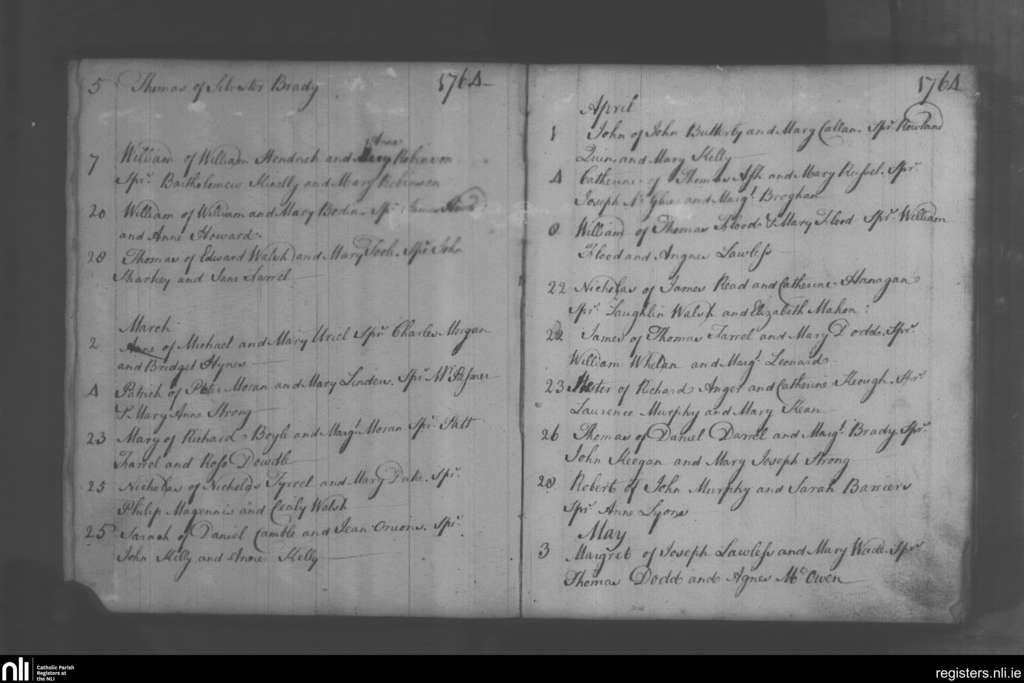 5 Thomas of Silvester Brady 1764
7 William of William Hendrich and Mary Robinson
Anne
Spr. Bartholemew Kinelly and Mary Robinson
20 William of William and Mary Bodin Spr. James
and Anne Howard
28 Thomas of Edward Walsh and Mary Toole. Spr. John
Sharkey and Jane Farrel
March
2 Anne of Michael and Mary Uriel Spr. Charles Morgan
and Bridget Hynes
4 Patrick of Peter Moran and Mary Linden. Spr. Mr.
& Mary Anne Strong
23 Mary of Richard Boyle and Margt. Moran Spr. Patt
Farrel and Rose Dowdle
25 Nicholas of Nicholas Tyrrel and Mary Duke. Spr.
Philip Magennis and Cealy Walsh
25 Sarach of Daniel Camble and Jean Onions. Spr.
John Kelly and Anne Kelly
1764
April
1 John of John Butterly and Mary Callan. Spr. Rowland
Quin, and Mary Kelly
4 Catherine of Thomas Ash and Mary Russel. Spr.
Joseph and Margt. Broghan
8 William of Thomas Flood & Mary Flood Spr. William
Flood and Angnes Lawless
22 Nicholas of James Read and Catherine Hanagan
Spr. Laughlin Walsh and Elizabeth Mahon
22 James of Thomas Farrel and Mary Dodd. Spr.
William Whelan and Margt. Leonard
23 of Richard Anger and Catherine Keough. Spr.
Laurence Murphy and Mary Kean
26 Thomas of Daniel Darrel and Margt. Brady Spr.
John Keegan and Mary Joseph Strong
28 Robert of John Murphy and Sarah Barriers
Spr. Anne Lyons
May
3 Margret of Joseph Lawless and Mary Wade. Spr.
Thomas Dodd and Agnes McOwen
nli Catholic Parish
Registers at
the NLI
registers.nli.ie